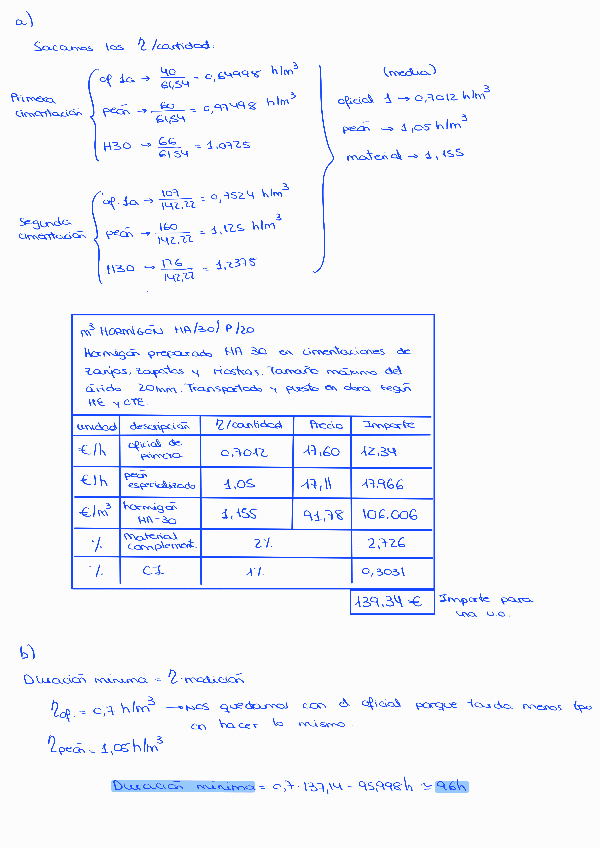 a)
Sacamos los η/cantidad:
Primera cimentación
of 1a → 40/61,54 = 0,64998 h/m³
peón → 60/61,54 = 0,97498 h/m³
H30 → 66/61,54 = 1,0725
Segunda cimentación
of. 1a → 107/142,22 = 0,7524 h/m³
peón → 160/142,22 = 1,125 h/m³
H30 → 176/142,22 = 1,2375
(media)
oficial 1 → 0,7012 h/m³
peón → 1,05 h/m³
material → 1,155
m³ HORMIGÓN HA/30/P/20
Hormigón preparado HA 30 en cimentaciones de
zanjas, zapatas y riostras. Tamaño máximo del
árido 20mm. Transportado y puesto en obra según
HE y CTE.
unidad descripción η/cantidad Precio Importe
€/h oficial de primera 0,7012 17,60 12,34
€/h peón especializado 1,05 17,11 17.966
€/m³ hormigón HA-30 1,155 91,78 106.006
% material complement. 2% 2,726
% CI 1% 0,3031
139.34 € Importe para
una u.o.
b)
Duración mínima = η·medición
η of. = 0,7 h/m³ → Nos quedamos con el oficial porque tarda menos
en hacer lo mismo.
η peón = 1,05 h/m³
Duración mínima = 0,7·137,14 = 95,998h ≃ 96h